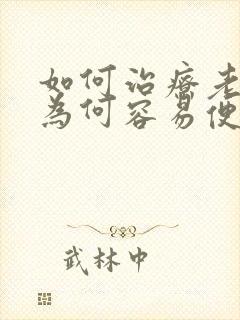 如何治療老
為何容易便
武林中